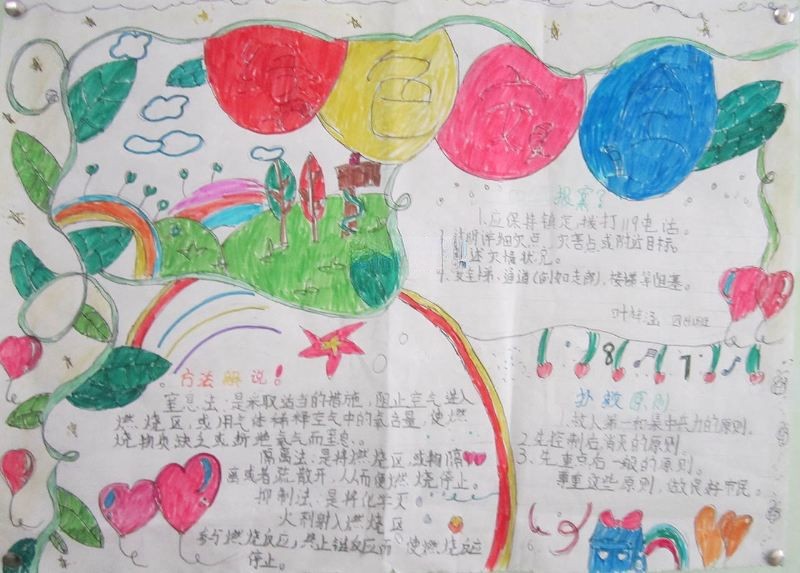 绿色家园
报案了
1.应保持镇定,拨打119电话。
明详细火点、火害点或附近目标
述火情状况。
4.安全梯、通道(例如走廊),楼梯等阻塞。
方法解说!
窒息法:是采取适当的措施,阻止空气进入
燃烧区,或用气体稀释空气中的氧含量,使燃
烧物质缺乏或断绝氧气而窒息。
隔离法:是将燃烧区或物隔
离或者疏散开,从而使燃烧停止。
抑制法:是将化学灭
火剂射入燃烧区
参与燃烧反应,终止链反应而使燃烧反应
停止。
8 月 7
扑救原则
1.救人第一和集中兵力的原则。
2.先控制后消灭的原则。
3.先重点后一般的原则。
尊重这些原则,做良好市民。